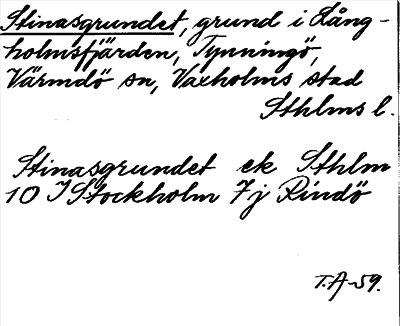 Stinasgrundet, grund i Lång-
holmsfjärden, Tynningö,
Värmdö sn, Vaxholms stad
Sthlms l.
Stinasgrundet ek Sthlm
10 I Stockholm 7j Rindö
T.A-59.